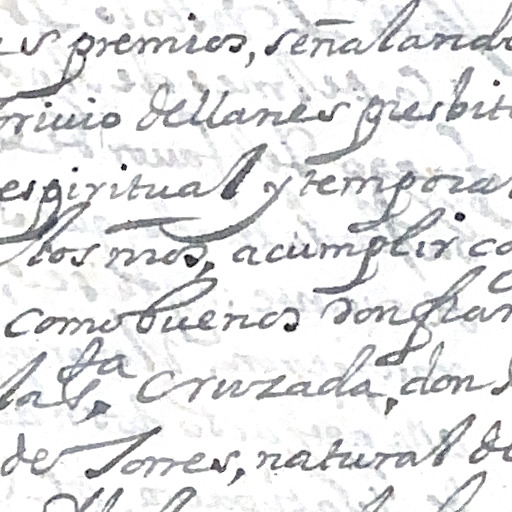 s premios, señalando
rivio dellanes presbit
espiritual y tempora
los mos, acumplir co
como buenos don fran
la S.ta Cruzada, don
de Torres, natural de